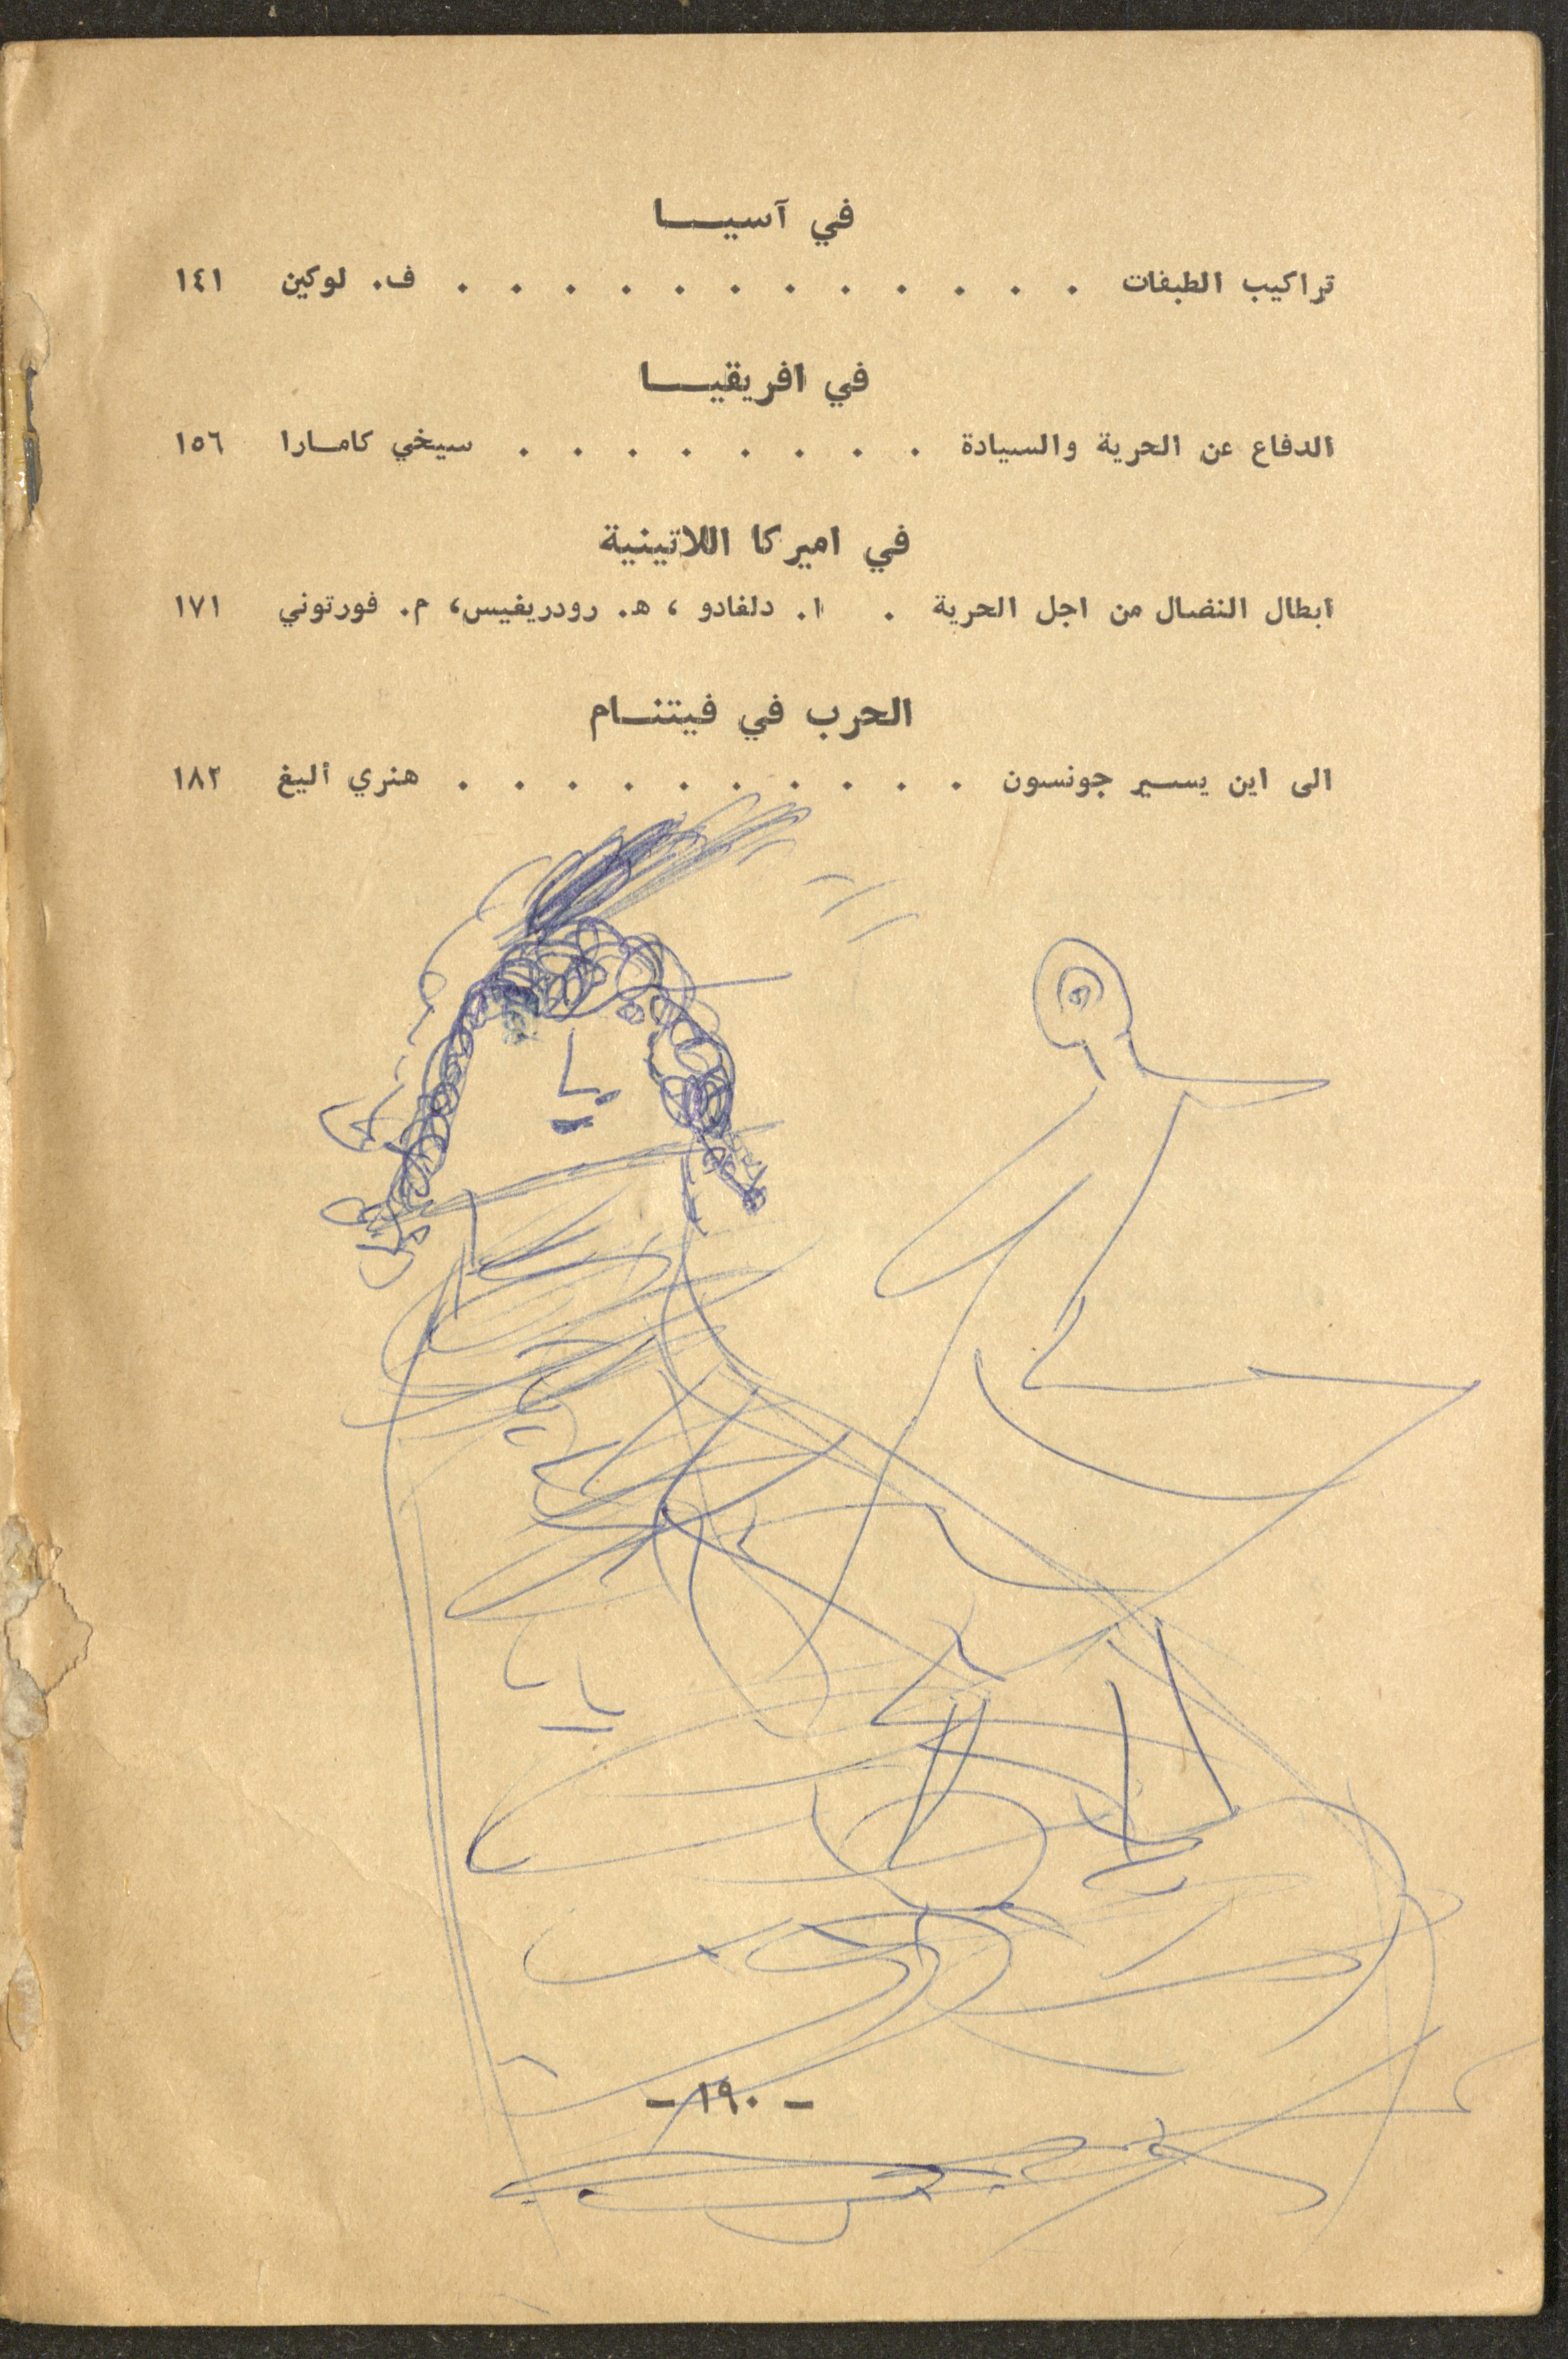 في آسيـــا
تراكيب الطبقات . . . . . . . . . . . . ف. لوكين ١٤١
في افريقيـــا
الدفاع عن الحرية والسيادة . . . . . . . . سيخي كامـارا ١٥٦
في اميركا اللاتينية
ابطال النضال من اجل الحرية . ا. دلغادو ، هـ. رودريغيس، م. فورتوني ١٧١
الحرب في فيتنـــام
الى اين يسـير جونسون . . . . . . . . . . هنري أليغ ١٨٢
- ١٩٠ -